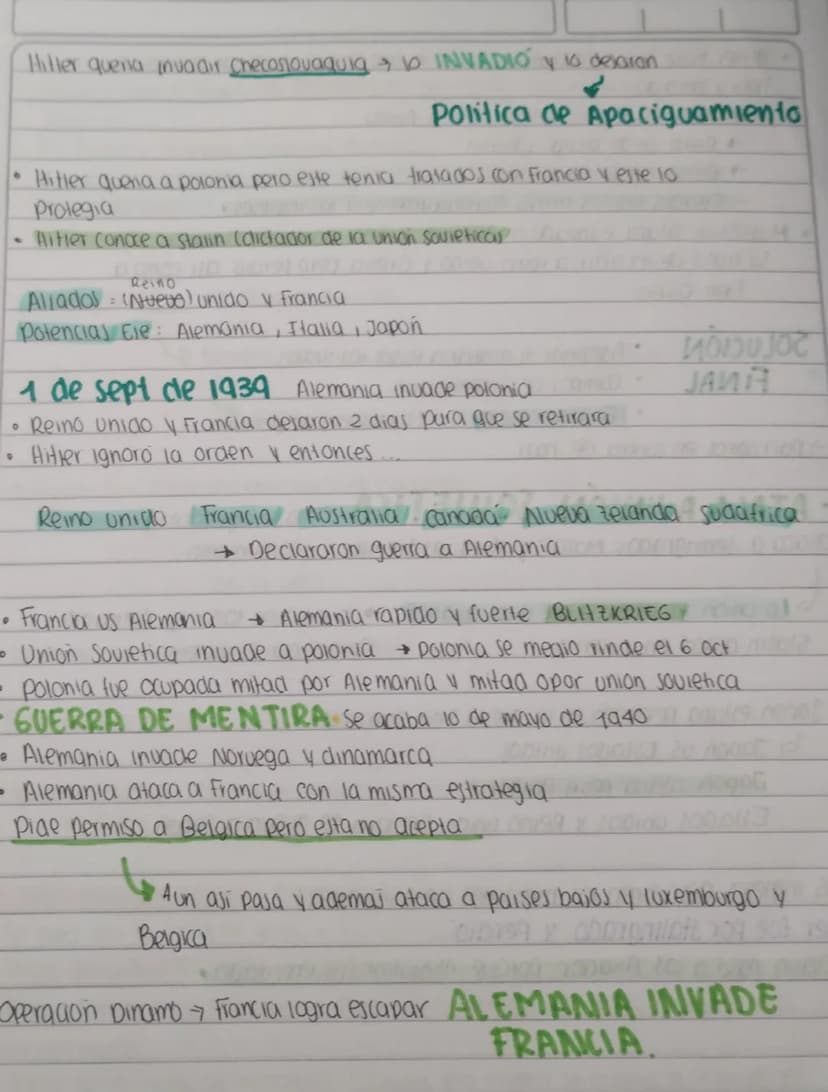 Hitler queria invadir checoslovaquia → lo INVADIÓ y lo dejaron
Politica de Apaciguamiento
• Hitler queria a polonia pero este tenia tratados con Francia y este lo
protegia
• Hitler conoce a stalin (dictador de la union sovietica)
Reino
Aliados = (Nuevo) unido y Francia
Potencias Eje: Alemania, Italia, Japón
1 de sept de 1939 Alemania invade polonia
• Reino unido y Francia dejaron 2 dias para que se retirara
• Hitler ignoró la orden y entonces...
Reino unido Francia Australia canadá Nueva zelanda sudafrica
→ Declararon guerra a Alemania
• Francia vs Alemania → Alemania rapido y fuerte BLITZKRIEG
• Unión Sovietica invade a polonia → Polonia se medio rinde el 6 oct
• polonia fue ocupada mitad por Alemania y mitad opor union sovietica
• GUERRA DE MENTIRA • se acaba 10 de mayo de 1940
• Alemania invade Noruega y dinamarca
• Alemania ataca a Francia con la misma estrategia
Pide permiso a Belgica pero esta no acepta
Aun asi pasa y ademas ataca a paises bajos y luxemburgo y
Belgica
Operación Dinamo → Francia logra escapar ALEMANIA INVADE
FRANCIA.